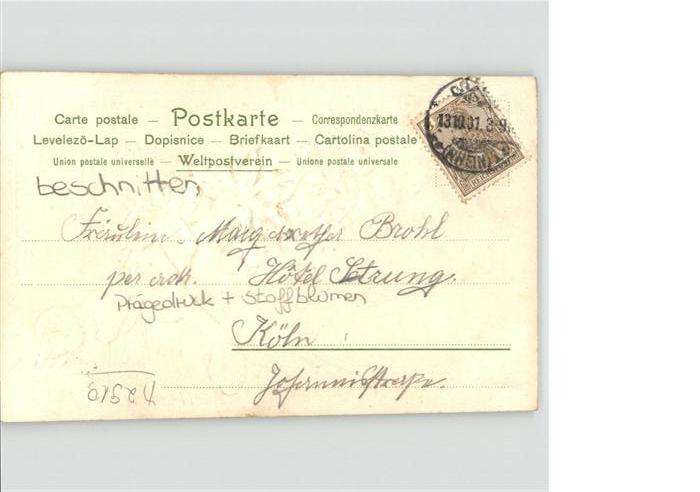 Carte postale — Postkarte — Correspondenzkarte
Levelezö-Lap — Dopisnice — Briefkaart — Cartolina postale
Union postale universelle — Weltpostverein — Unione postale universale
13.10.01. 8-9
beschnitten
Fräulein Brohl
per Hôtel
Prägedruck + Stoffblumen
Köln
Johannisstraße.